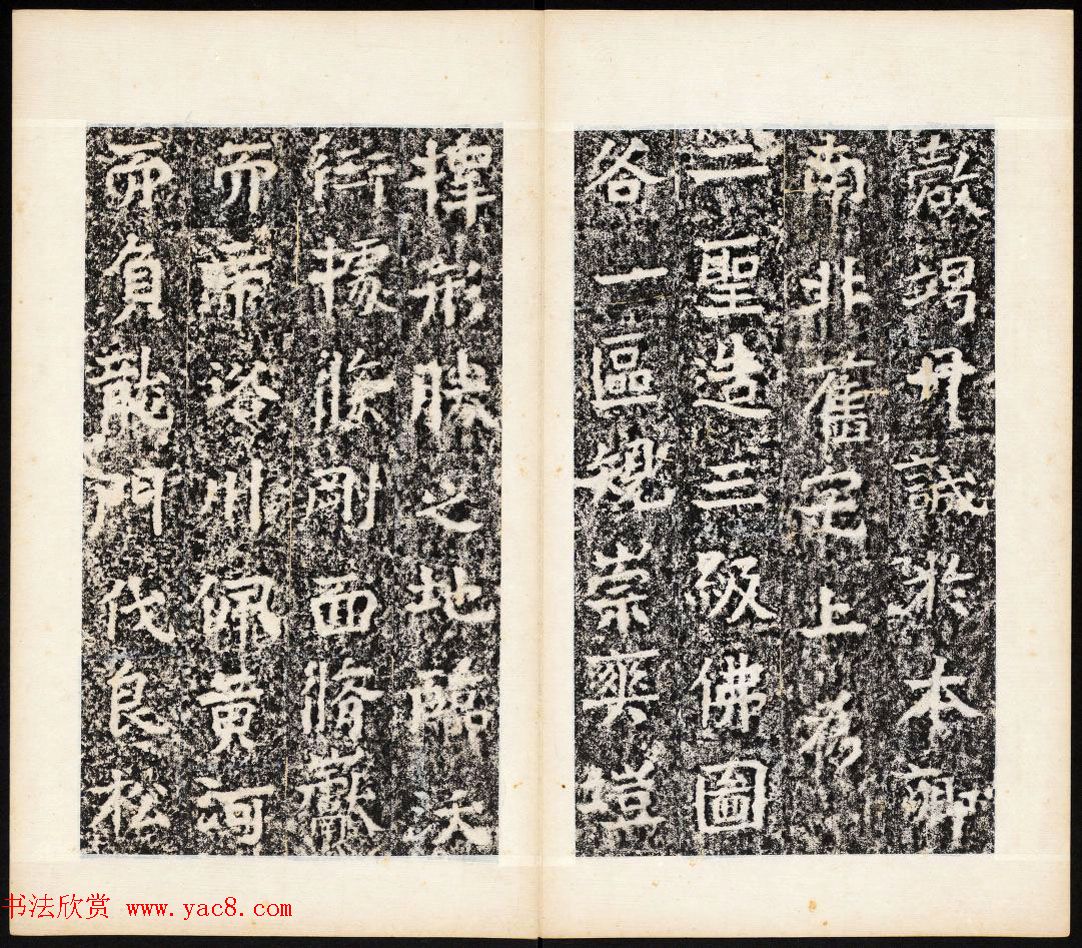 罄竭丹誠於本鄉
南北舊宅上為
二聖造三級佛圖
各一區規崇爽塏
擇形勝之地臨沃
衍據條剛面脩嶽
而帶洛川佩黃河
而負龍門伐良松
书法欣赏 www.yac8.com